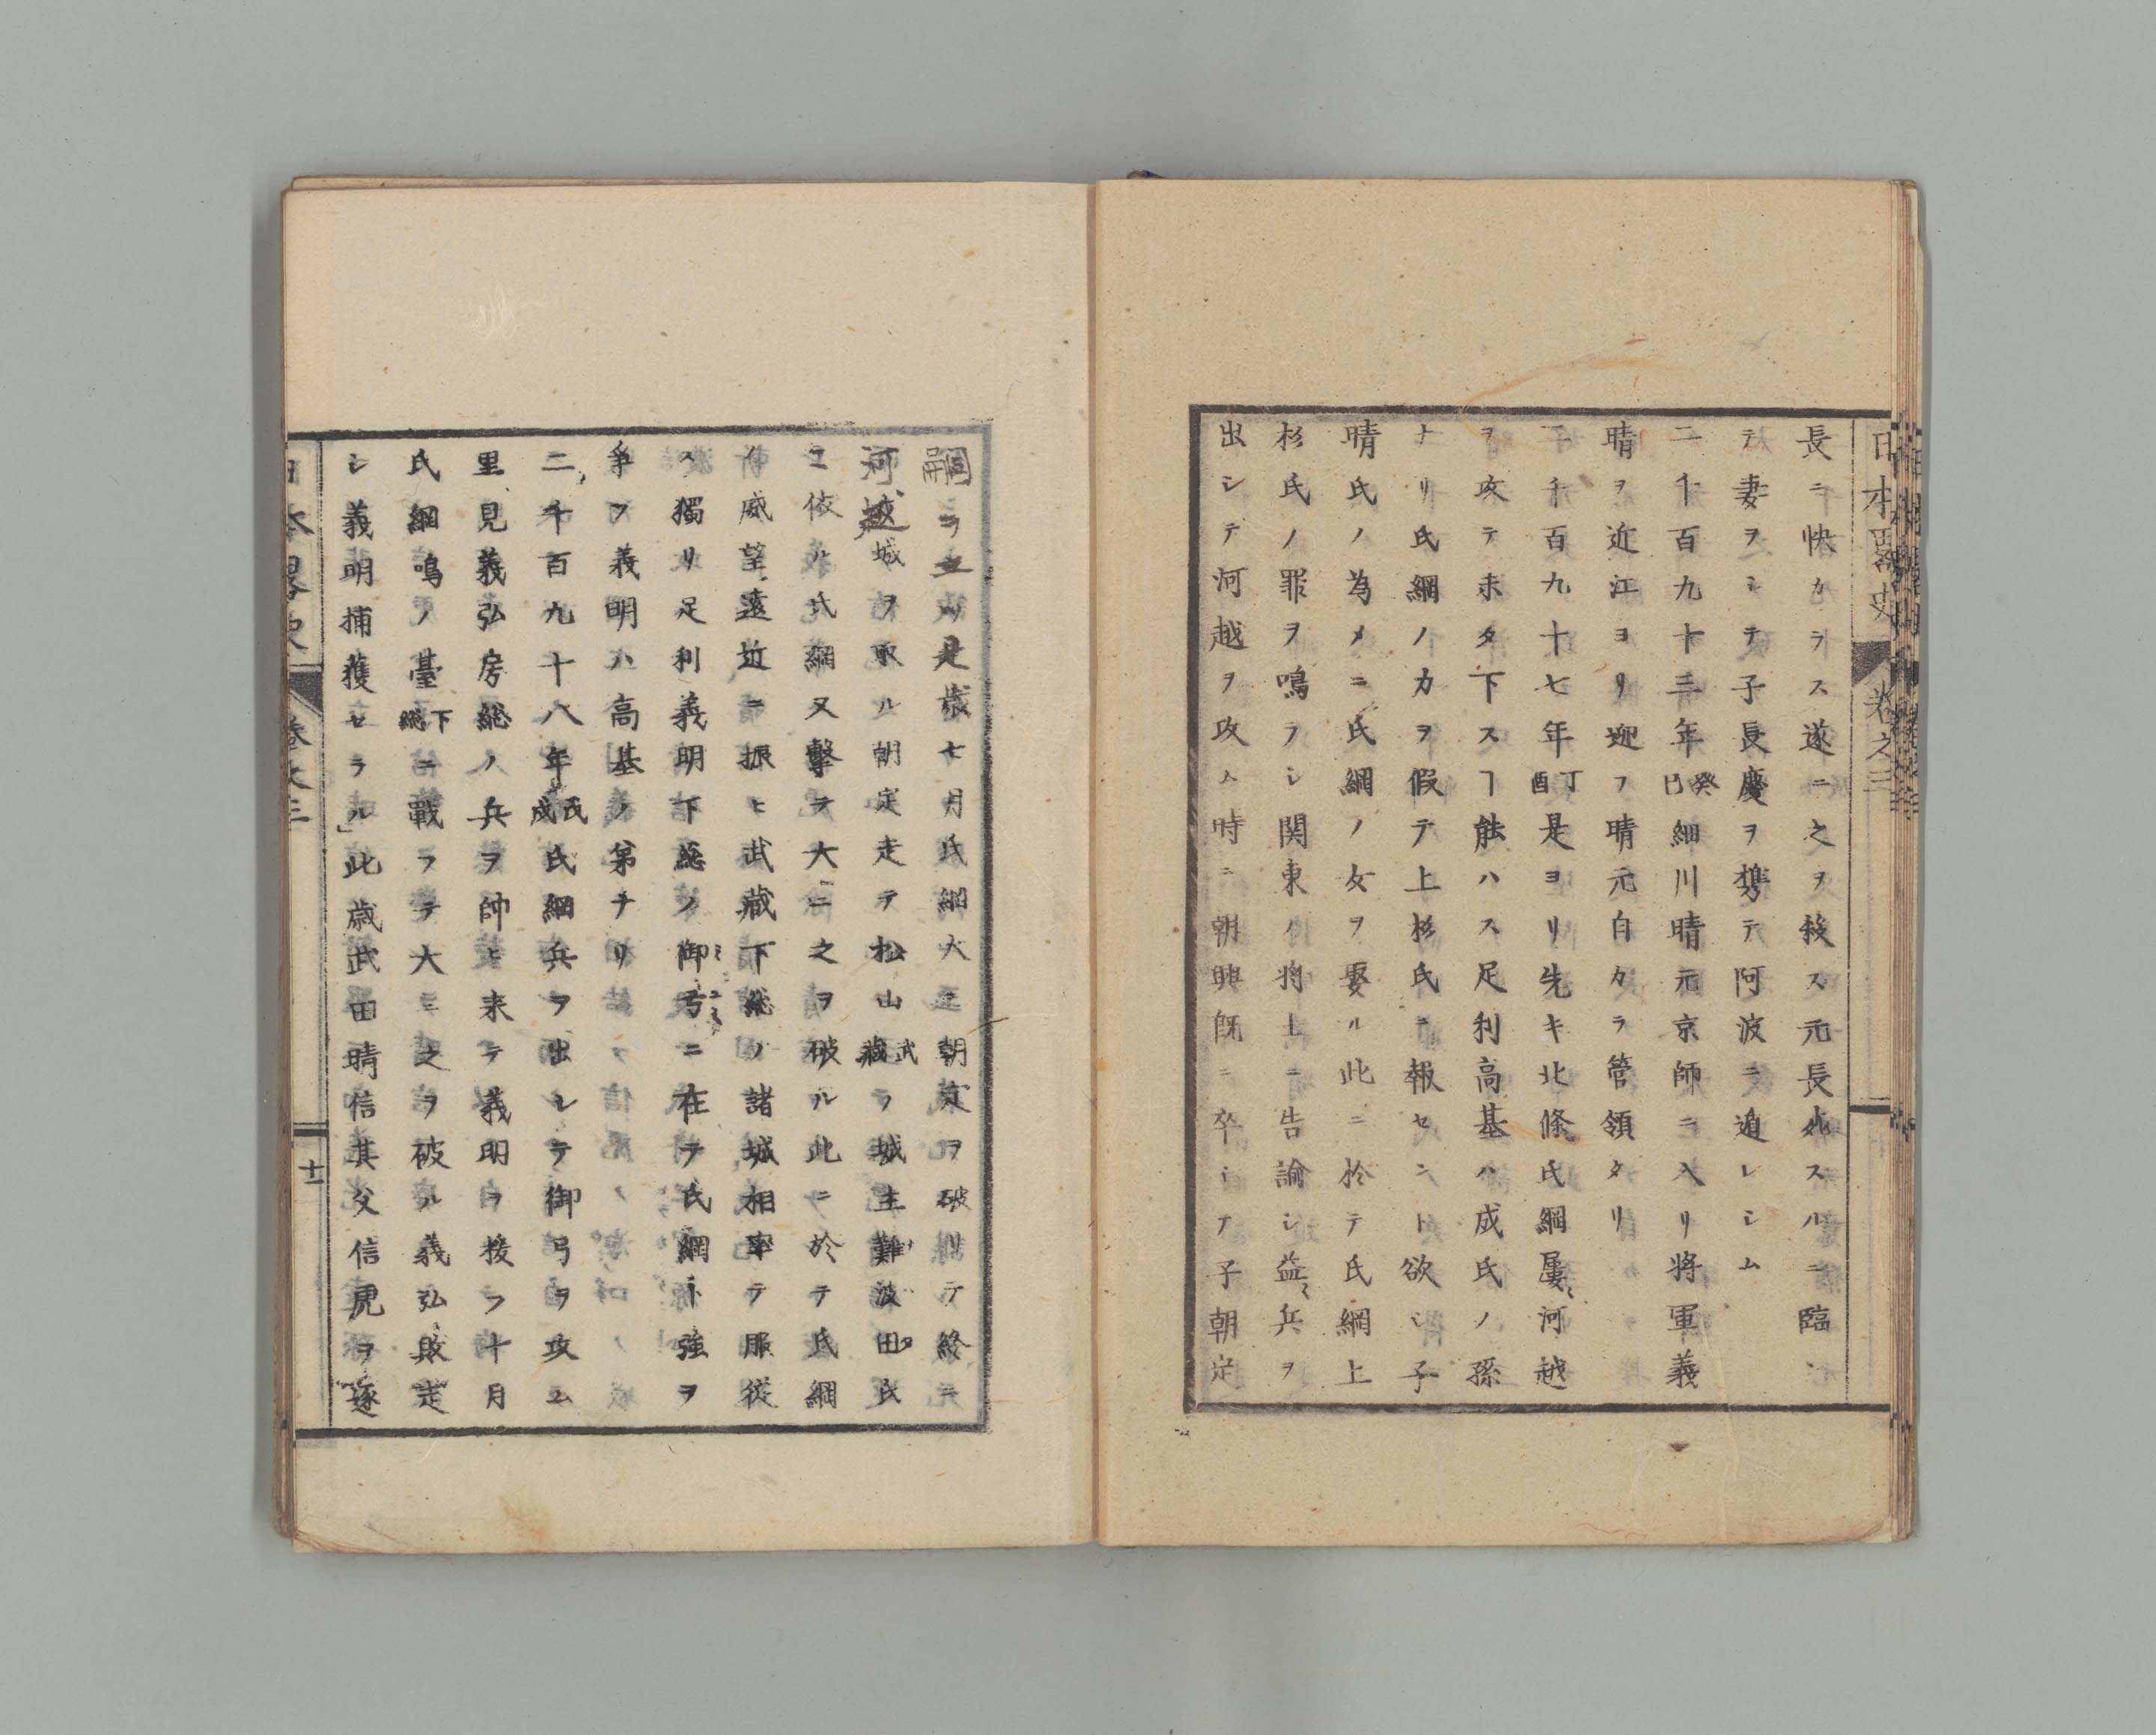 日本畧史 卷之三
長ニ快カラス遂ニ之ヲ殺ス元長死スルニ臨
テ妻ヲシテ子長慶ヲ携テ阿波ニ遁レシム
二千百九十三年癸巳細川晴元京師ニ入リ將軍義
晴ヲ近江ヨリ迎フ晴元自カラ管領タリ
二千百九十七年丁酉是ヨリ先キ北條氏綱屢河越
ヲ攻テ未タ下スヿ能ハス足利高基ハ成氏ノ孫
ナリ氏綱ノ力ヲ假テ上杉氏ニ報セントト欲シ子
晴氏ノ為メニ氏綱ノ女ヲ娶ル此ニ於テ氏綱上
杉氏ノ罪ヲ鳴ラシ関東ノ將士ニ告諭シ益兵ヲ
出シテ河越ヲ攻ム時ニ朝興既ニ卒シテ子朝定
嗣ヲ立ツ是歳七月氏綱大ニ朝定ヲ破リテ終ニ
河越城ヲ取ル朝定走テ松山武藏ノ城主難波田氏
ニ依ル氏綱又擊ヲ大ニ之ヲ破ル此ニ於テ氏綱
ノ威望遠近ニ振ヒ武藏下總ノ諸城相率テ服從
ス獨リ足利義明下總ノ御弓ニ在テ氏綱ト強ヲ
爭フ義明ハ高基ノ弟ナリ
二千百九十八年戊戌氏綱兵ヲ出シテ御弓ヲ攻ム
里見義弘房総ノ兵ヲ帥ヒ来テ義明ヲ援フ十月
氏綱鳴ノ臺下總ニ戰フテ大ニ之ヲ破ル義弘敗走
シ義明捕獲セラル此歳武田晴信其父信虎ヲ逐
日本畧史 卷之三 十一